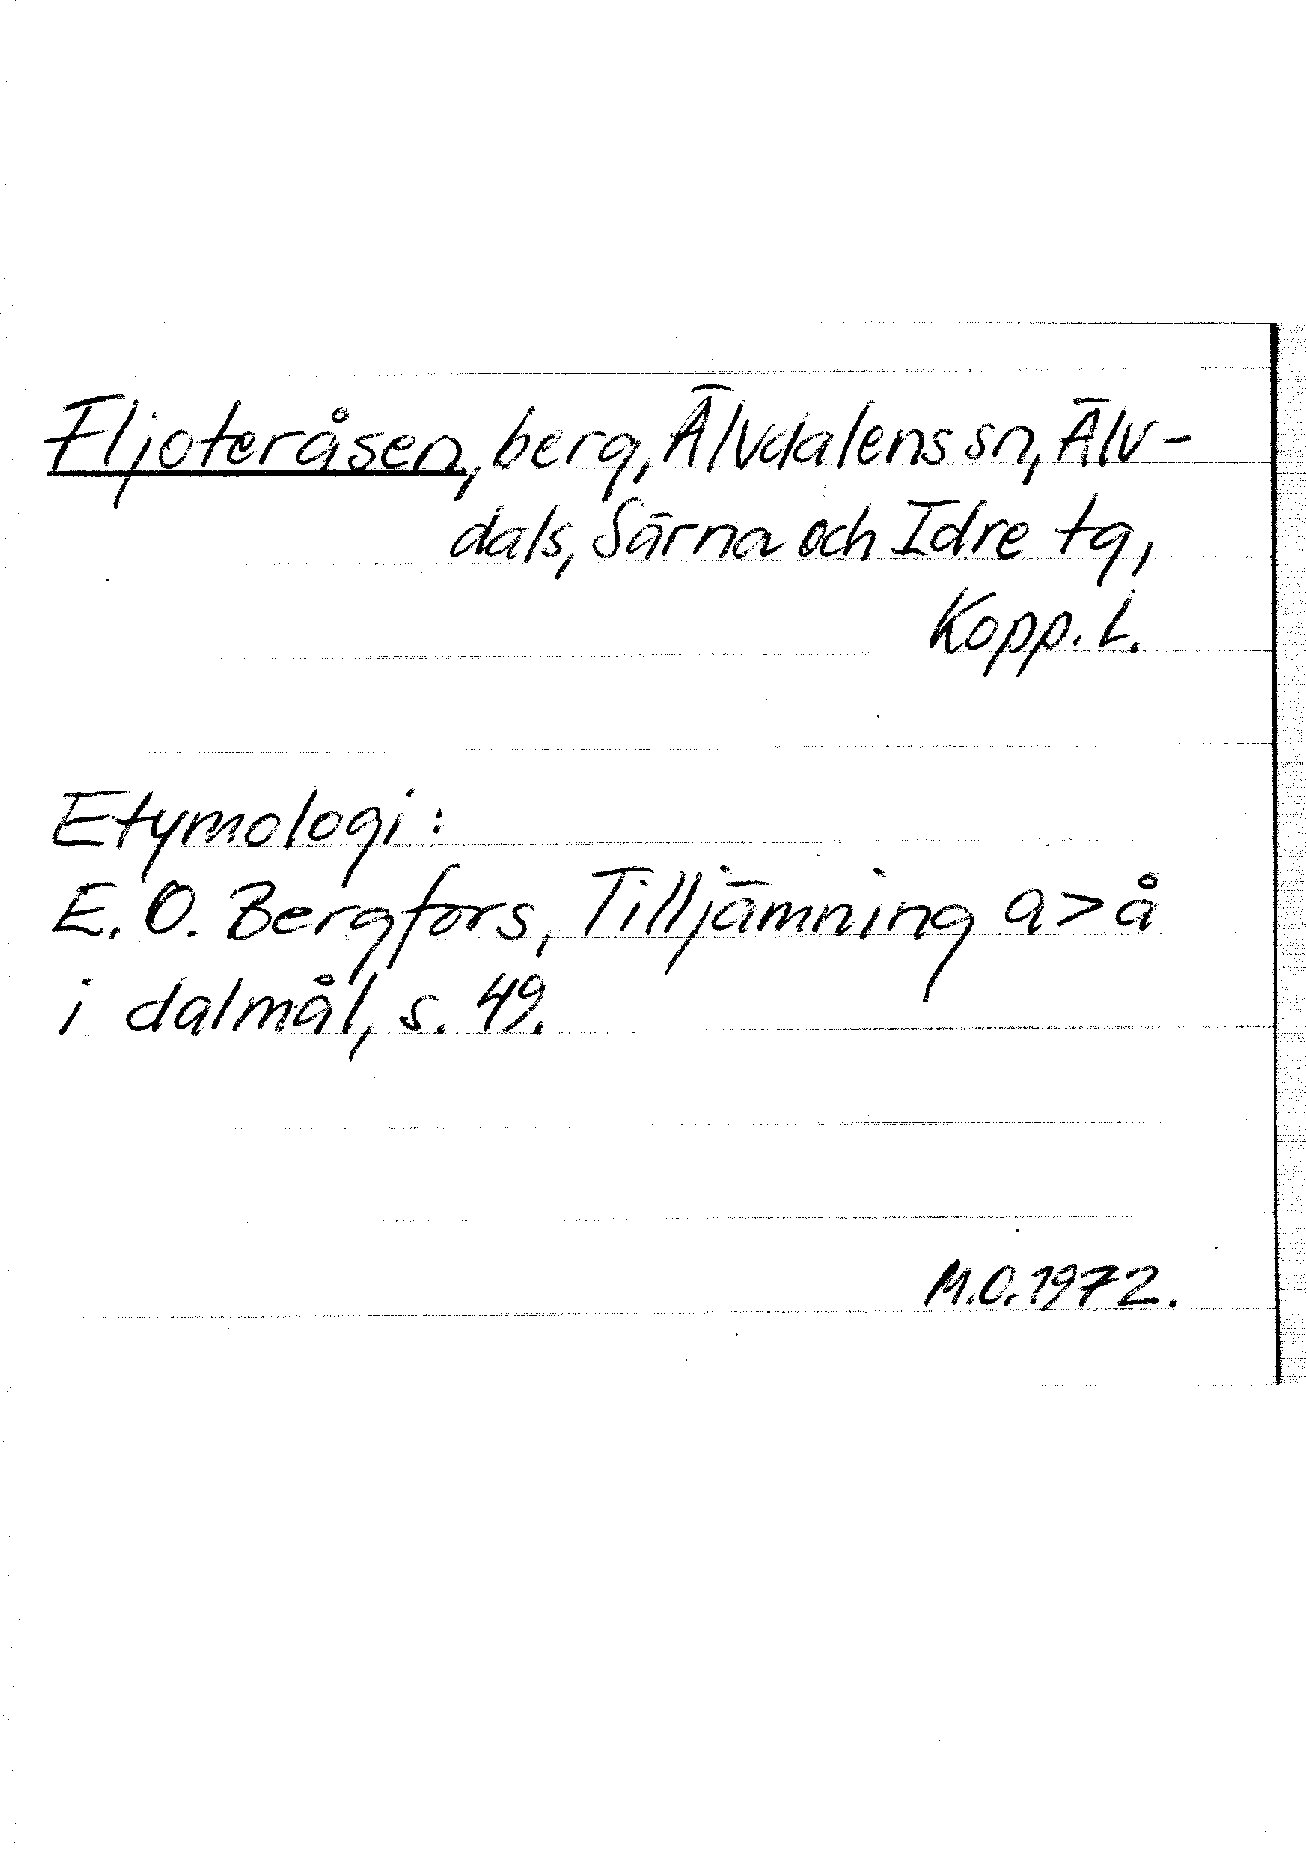 Fljoteråsen, berg, Älvdalens sn, Älv-
dals, Särna och Idre tg,
Kopp. L.
Etymologi:
E. O. Bergfors, Tilljämning a>å
i dalmål, s. 49.
M.O. 1972.